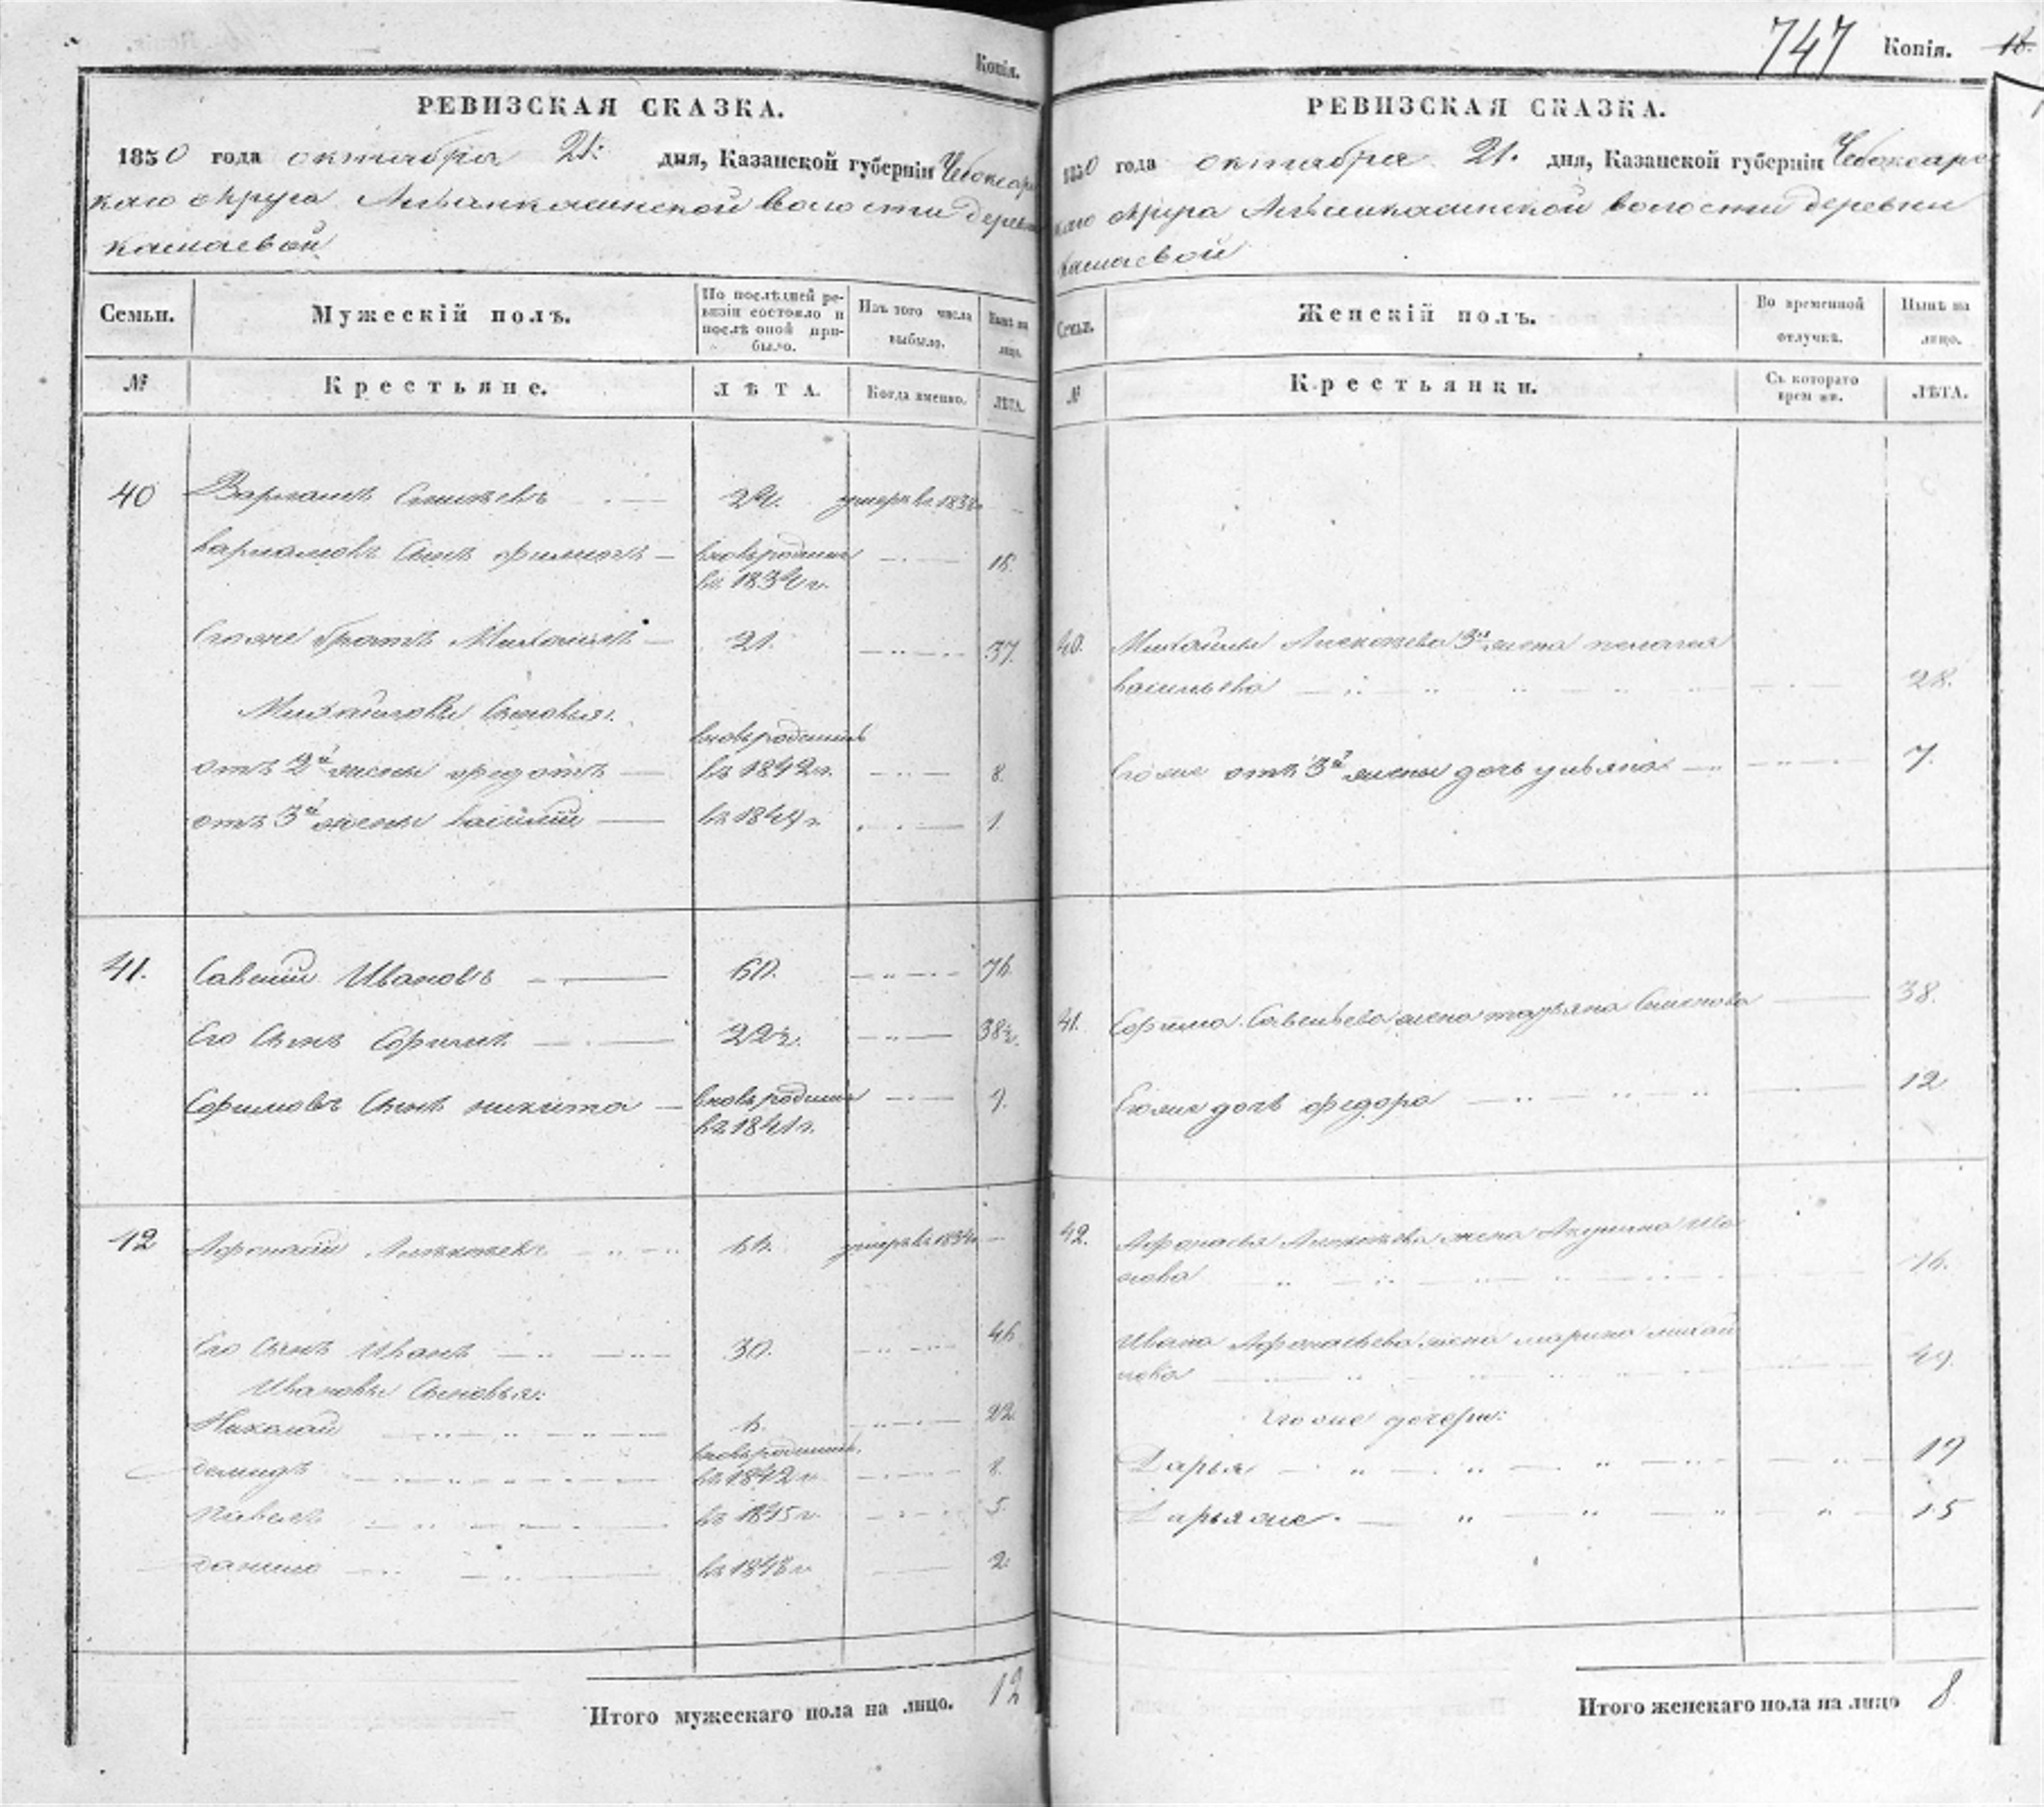 Копія.
РЕВИЗСКАЯ СКАЗКА.
1850 года октября 21. дня, Казанской губерніи Чебоксар
каго округа волости дерев
кашаевой
Семьи.
Мужескій полъ.
По послѣдней ре-
визіи состояло и
послѣ оной при-
было.
Изъ того числа
выбыло.
Нынѣ на
лицо.
№
Крестьяне.
ЛѢТА.
Когда именно.
ЛѢТА.
40
Варламъ
умеръ въ
варламовъ сынъ
вновь родился
18.
въ г.
его же братъ Михаилъ
21.
37.
Михайловы сыновья:
вновь родившіеся
отъ 2й жены федотъ
въ 1842 г.
8.
отъ 3й жены василій
въ 1849 г.
1.
41.
Савелій Ивановъ
60.
76.
Его сынъ Ефимъ
22½.
38½.
Ефимовъ сынъ никита
вновь родился
9.
въ 1841 г.
42
Афонасій
умеръ въ
Его сынъ Иванъ
30.
46
Ивановы сыновья:
Николай
6.
22
вновь родившіеся
демидъ
въ 1842 г.
8.
павелъ
въ 1845 г.
5.
данило
въ 1848 г.
2
Итого мужескаго пола на лицо.
12
747
Копія.
18.
РЕВИЗСКАЯ СКАЗКА.
1850 года октября 21. дня, Казанской губерніи Чебоксарс
каго округа волости деревни
кашаевой
Семьи.
Женскій полъ.
Во временной
отлучкѣ.
Нынѣ на
лицо.
№
Крестьянки.
Съ котораго
времени.
ЛѢТА.
40.
Михайлы Алексѣева 3я жена пелагея
васильева
28.
Его же отъ 3й жены дочь ульяна
7.
41.
Ефима Савельева жена татьяна Семенова
38.
Его же дочь федора
12
42.
Афонасья Алексѣева жена Акулина Ива
нова
76.
Ивана Афонасьева жена марина михай
лова
49.
Его же дочери:
Дарья
19
Дарья же.
15
Итого женскаго пола на лицо
8